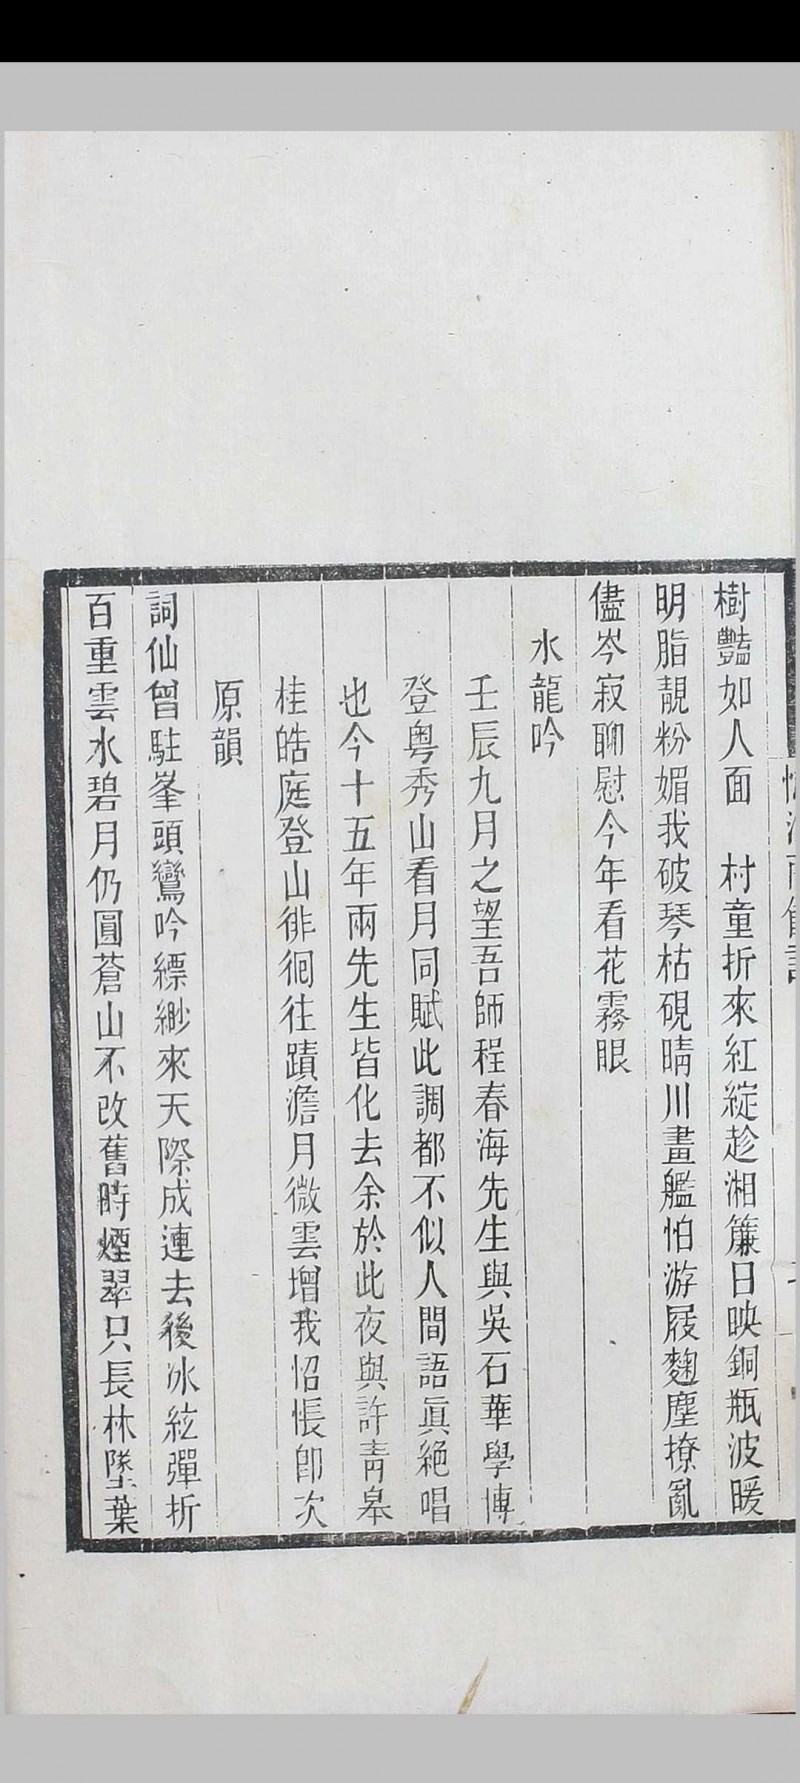 樹豔如人面　村童折來紅綻趁湘簾日映銅瓶波暖
明脂靚粉媚我破琴枯硯晴川畫艦怕游屐麴塵撩亂
儘岑寂聊慰今年看花霧眼
水龍吟
壬辰九月之望吾師程春海先生與吳石華學博
登粵秀山看月同賦此調都不似人間語眞絕唱
也今十五年兩先生皆化去余於此夜與許青皋
桂皓庭登山徘徊往蹟澹月微雲增我怊悵卽次
原韻
詞仙曾駐峯頭鸞吟縹緲來天際成連去後冰絃彈折
百重雲水碧月仍圓蒼山不改舊時煙翠只長林墜葉